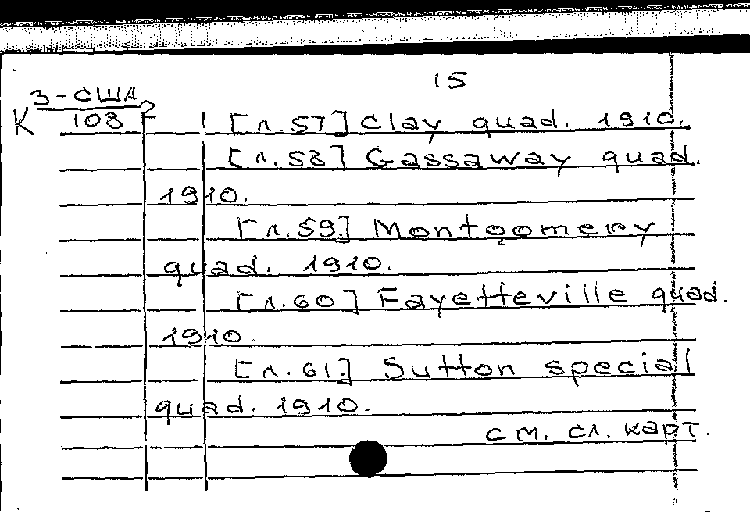 15
3-США
К 103
[л.57] Clay quad. 1910.
[л.58] Gassaway quad.
1910.
[л.59] Montgomery
quad. 1910.
[л.60] Fayetteville quad.
1910.
[л.61.] Sutton special
quad. 1910.
см. сл. карт.